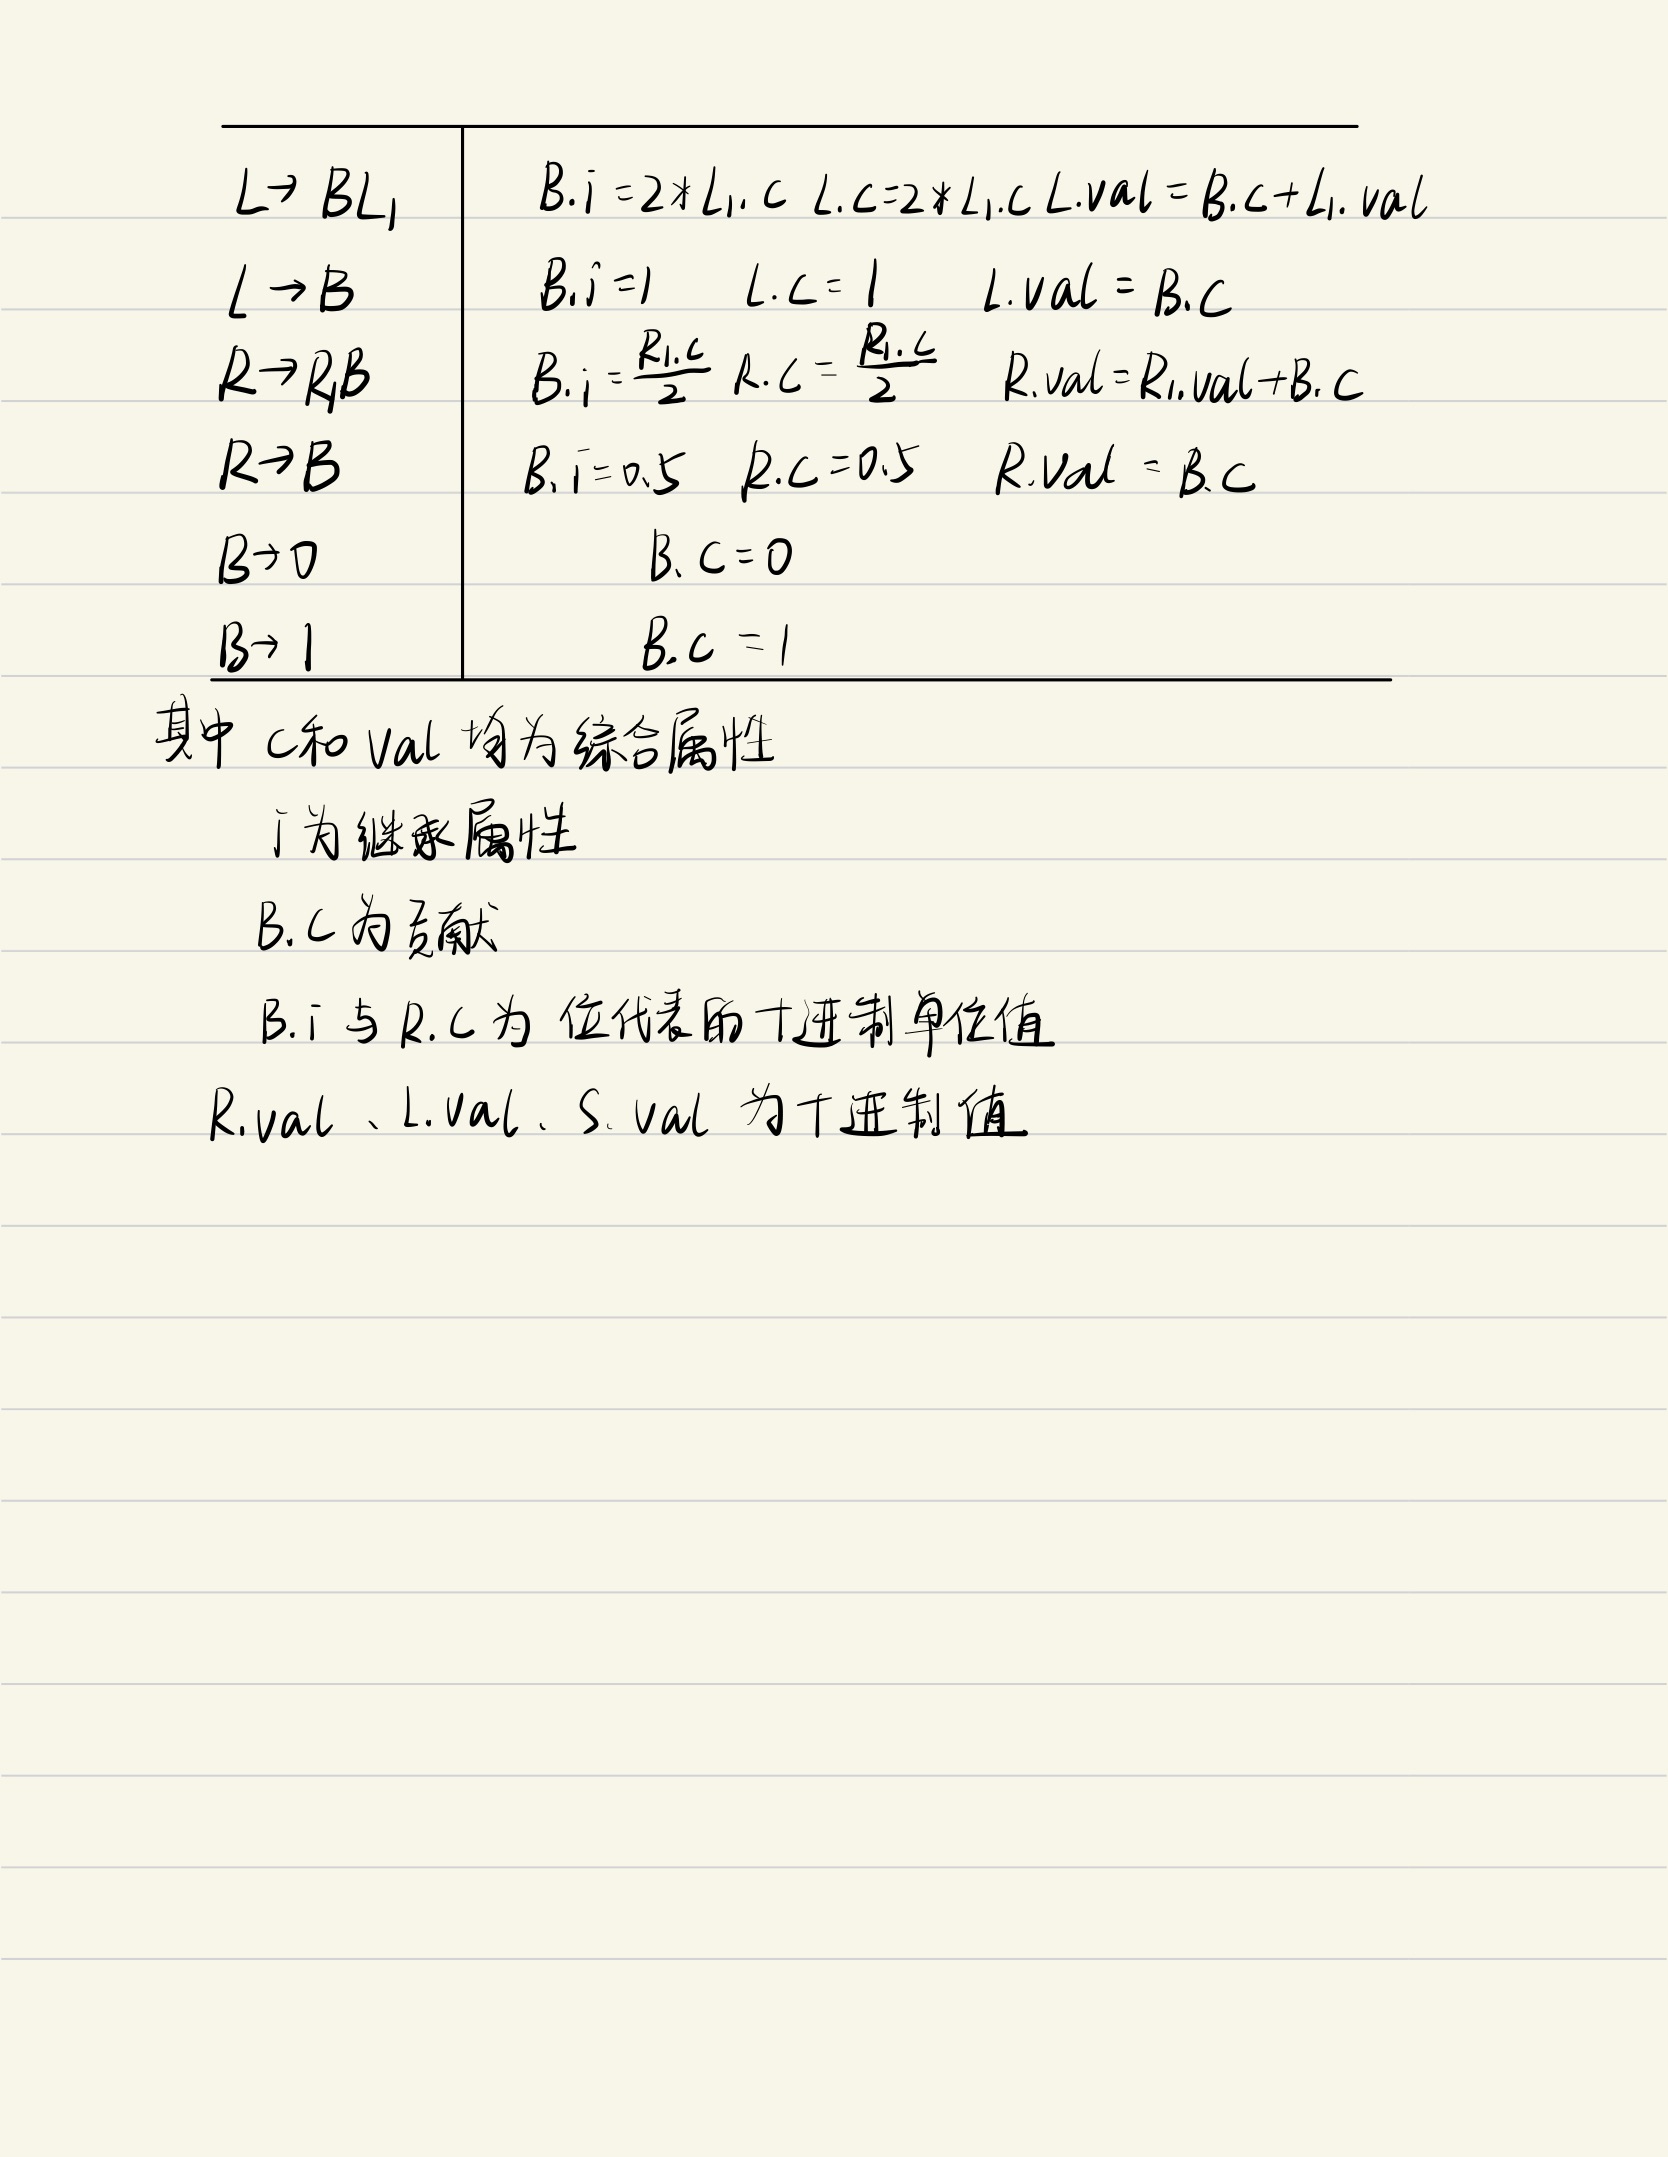 L→BL₁ B.i=2*L₁.c L.c=2*L₁.c L.val=B.c+L₁.val
L→B B.i=1 L.c=1 L.val=B.c
R→R₁B B.i=R₁.c/2 R.c=R₁.c/2 R.val=R₁.val+B.c
R→B B.i=0.5 R.c=0.5 R.val=B.c
B→0 B.c=0
B→1 B.c=1
其中 c和val 均为综合属性
i为继承属性
B.c为贡献
B.i与R.c为 位代表的十进制单位值
R.val、L.val、S.val 为十进制值